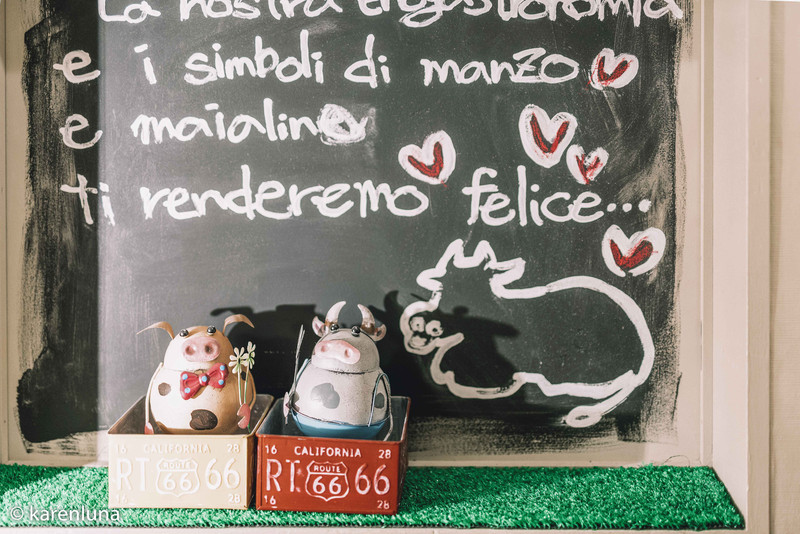 La nostra enogastronomia
e i simboli di manzo
e maialino
ti renderemo felice...
16 CALIFORNIA 28
RT ROUTE 66 66
16 28
16 CALIFORNIA 28
RT. ROUTE 66 66
16 28
©karenluna